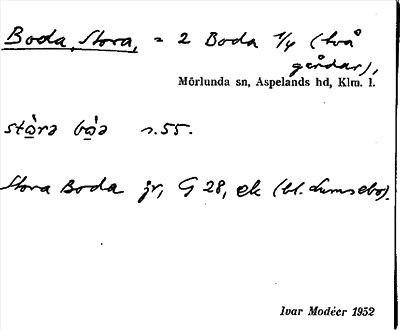 Boda, Stora, = 2 Boda 1/4 (två
gårdar),
Mörlunda sn, Aspelands hd, Klm. l.
stòrə bòə s. 55.
Stora Boda jr, G 28, ek (bl. Lumsebo).
Ivar Modéer 1952